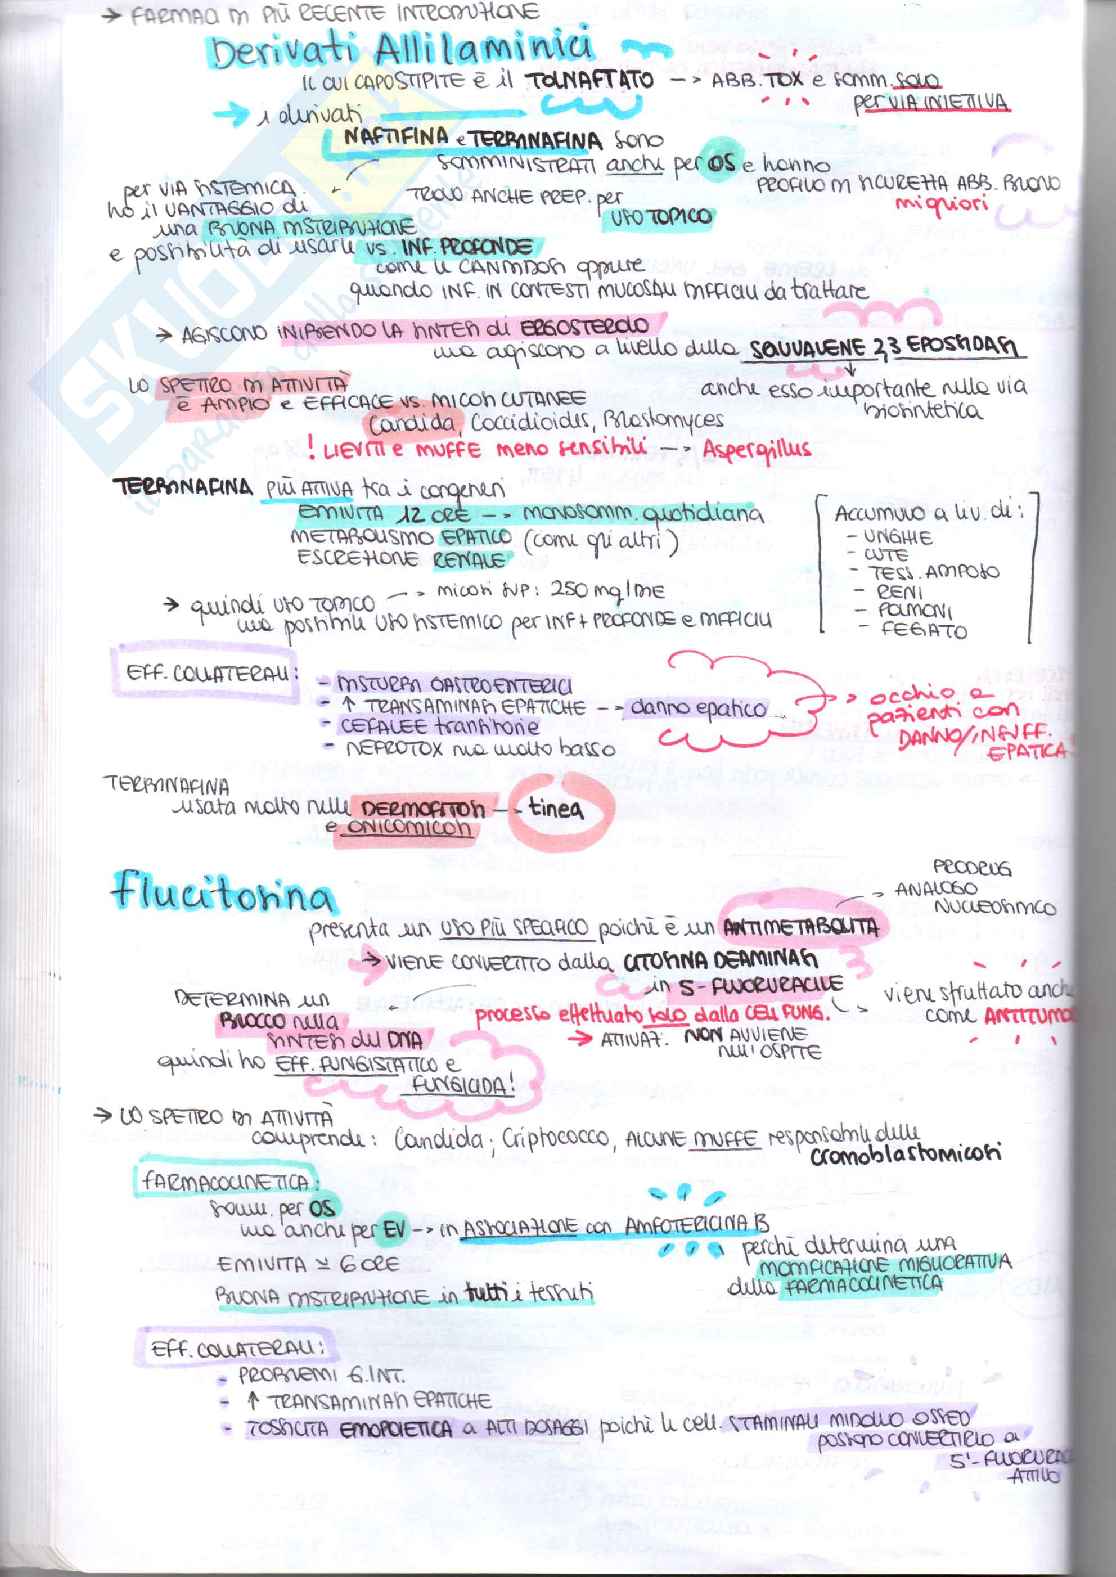 → FARMACI DI PIÙ RECENTE INTRODUZIONE
Derivati Allilaminici
IL CUI CAPOSTIPITE È il TOLNAFTATO --> ABB. TOX e somm. SOLO
per VIA INIETTIVA
→ i derivati
NAFTIFINA e TERBINAFINA sono
SOMMINISTRATI anche per OS e hanno
PROFILO DI SICUREZZA ABB. BUONO
migliori
per VIA SISTEMICA
ho il VANTAGGIO di
una BUONA DISTRIBUZIONE
e possibilità di usarli vs. INF. PROFONDE
come le CANDIDOSI oppure
quando INF. IN CONTESTI MUCOSALI DIFFICILI da trattare
TROVO ANCHE PREP. per
USO TOPICO
→ AGISCONO INIBENDO LA SINTESI di ERGOSTEROLO
ma agiscono a livello della SQUALENE 2,3 EPOSSIDASI
anche esso importante nella via
biosintetica
LO SPETTRO DI ATTIVITÀ
È AMPIO e EFFICACE VS. MICOSI CUTANEE
Candida, Coccidioides, Blastomyces
! LIEVITI e MUFFE meno sensibili --> Aspergillus
TERBINAFINA PIÙ ATTIVA tra i congeneri
EMIVITA 12 ORE --> MONOSOMM. quotidiana
METABOLISMO EPATICO (come gli altri)
ESCREZIONE RENALE
ACCUMULO a liv. di:
- UNGHIE
- CUTE
- TESS. ADIPOSO
- RENI
- POLMONI
- FEGATO
→ quindi USO TOPICO --> micosi SUP: 250 mg/DIE
ma possibile USO SISTEMICO per INF + PROFONDE e DIFFICILI
EFF. COLLATERALI:
- DISTURBI GASTROENTERICI
- ↑ TRANSAMINASI EPATICHE --> danno epatico
- CEFALEE transitorie
- NEFROTOX ma molto basso
--> occhio a
pazienti con
DANNO/INSUFF.
EPATICA
TERBINAFINA
usata molto nelle DERMOFITOSI --> tinea
e ONICOMICOSI
Flucitosina
PRODRUG
ANALOGO
NUCLEOSIDICO
presenta un USO PIÙ SPECIFICO poichè è un ANTIMETABOLITA
→ VIENE CONVERTITO dalla CITOSINA DEAMINASI
in 5-FLUORURACILE
viene sfruttato anche
come ANTITUMO
processo effettuato SOLO dalla CELL FUNG.
→ ATTIVAZ. NON AVVIENE
NELL'OSPITE
DETERMINA un
BLOCCO nella
SINTESI del DNA
quindi ho EFF. FUNGISTATICO e
FUNGICIDA!
→ LO SPETTRO DI ATTIVITÀ
comprende: Candida; Criptococco, ALCUNE MUFFE responsabili delle
cromoblastomicosi
FARMACOCINETICA:
somm. per OS
ma anche per EV --> in ASSOCIAZIONE con AMFOTERICINA B
perchè determina una
MODIFICAZIONE MIGLIORATIVA
della FARMACOCINETICA
EMIVITA ≃ 6 ORE
BUONA DISTRIBUZIONE in tutti i tessuti
EFF. COLLATERALI:
- PROBLEMI G.INT.
- ↑ TRANSAMINASI EPATICHE
- TOSSICITÀ EMOPOIETICA a ALTI DOSAGGI poichè le cell. STAMINALI MIDOLLO OSSEO
possono CONVERTIRLO a
5'-FLUORURAC
ATTIVO